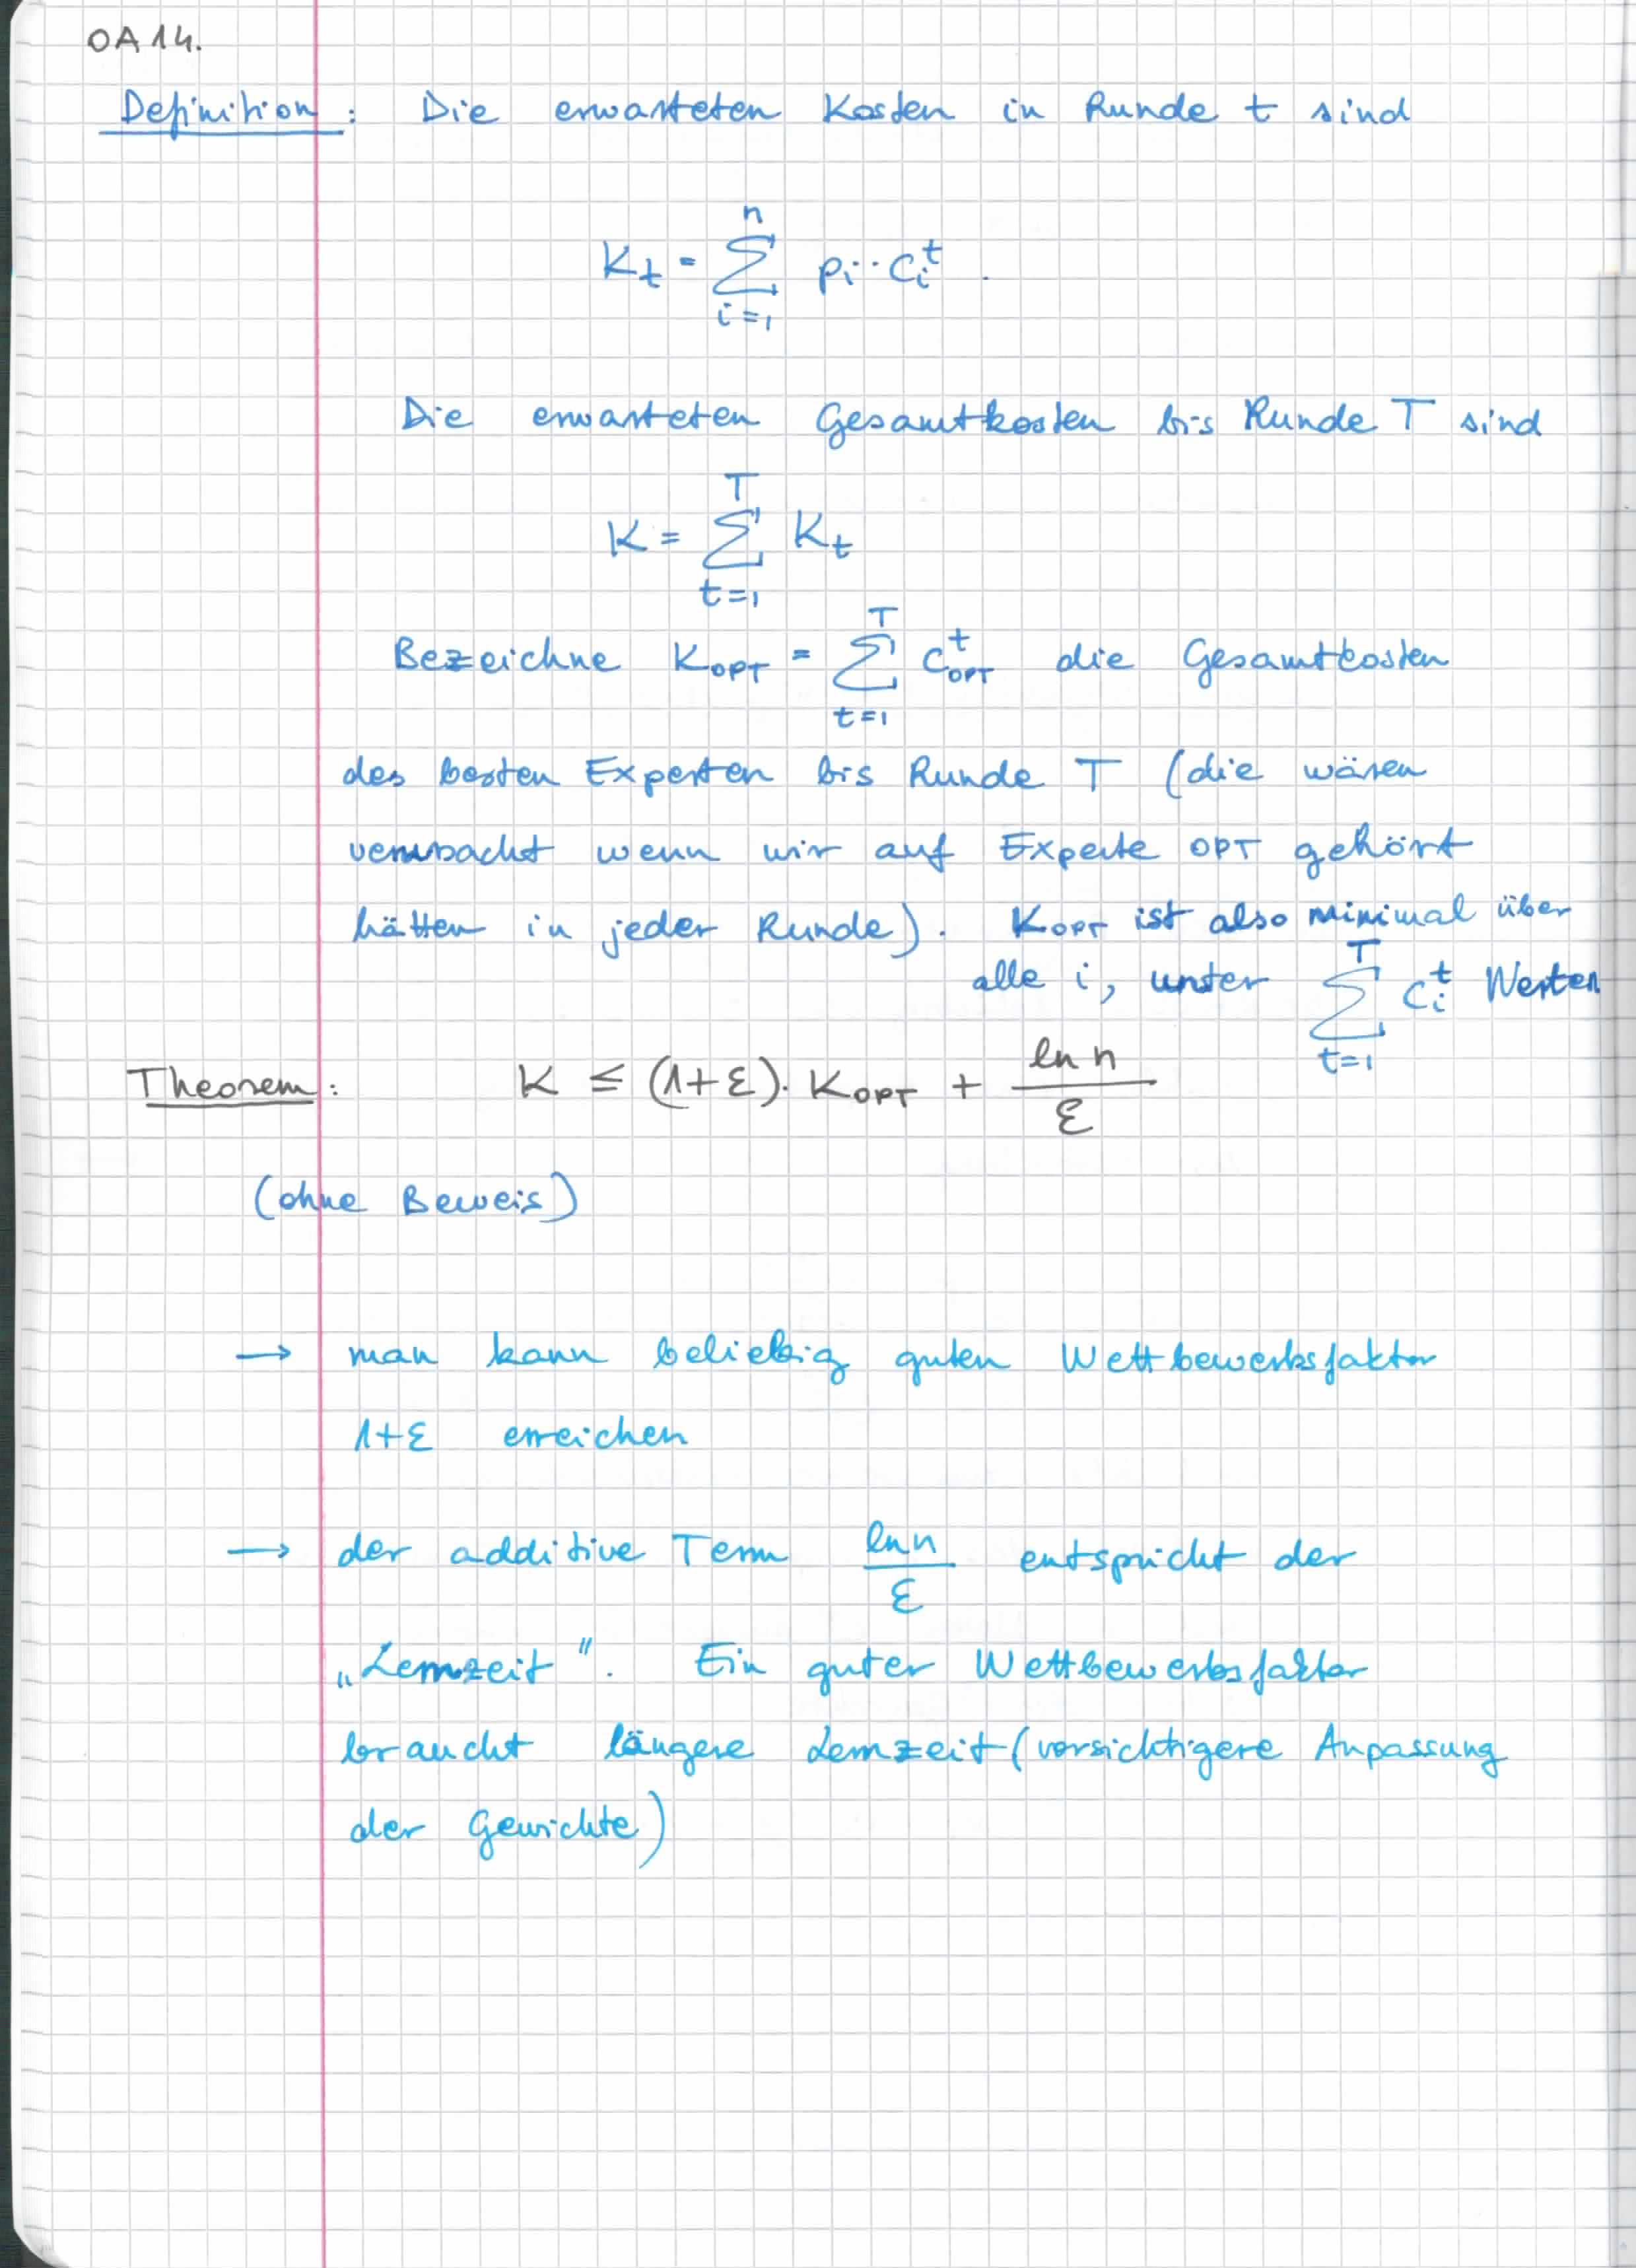 OA 14.
Definition: Die erwarteten Kosten in Runde t sind
K_t = \sum_{i=1}^{n} p_i \cdot c_i^t .
Die erwarteten Gesamtkosten bis Runde T sind
K = \sum_{t=1}^{T} K_t
Bezeichne K_{OPT} = \sum_{t=1}^{T} c_{OPT}^t die Gesamtkosten
des besten Experten bis Runde T (die wären
verursacht wenn wir auf Experte OPT gehört
hätten in jeder Runde). K_{OPT} ist also minimal über
alle i, unter \sum_{t=1}^{T} c_i^t Werten
Theorem: K ≤ (1+ε) · K_{OPT} + \frac{ln n}{ε}
(ohne Beweis)
→ man kann beliebig guten Wettbewerbsfaktor
1+ε erreichen
→ der additive Term \frac{ln n}{ε} entspricht der
„Lernzeit". Ein guter Wettbewerbsfaktor
braucht längere Lernzeit (vorsichtigere Anpassung
der Gewichte)